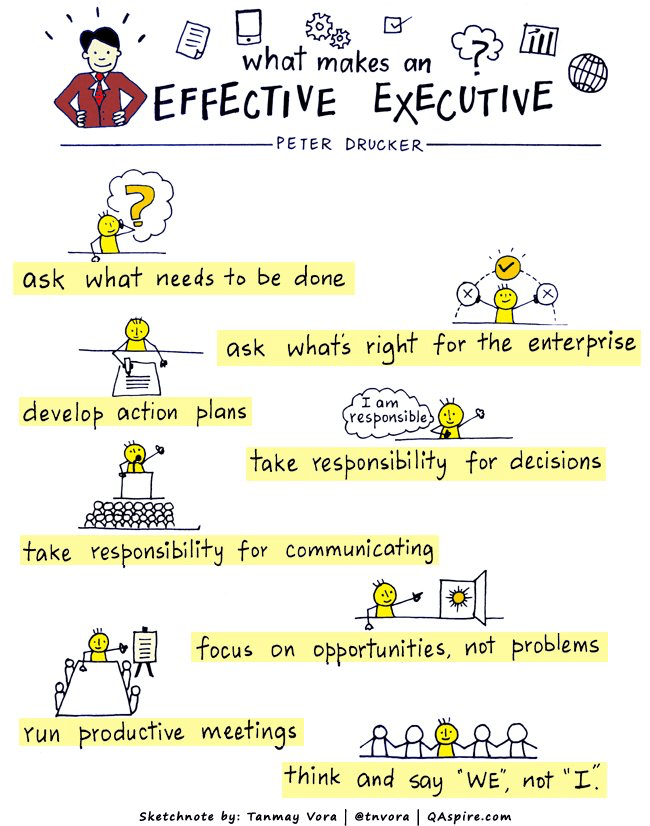 what makes an
EFFECTIVE EXECUTIVE
PETER DRUCKER
?
?
ask what needs to be done
ask what's right for the enterprise
develop action plans
I am
responsible
take responsibility for decisions
take responsibility for communicating
focus on opportunities, not problems
run productive meetings
think and say "WE", not "I".
Sketchnote by: Tanmay Vora | @tnvora | QAspire.com